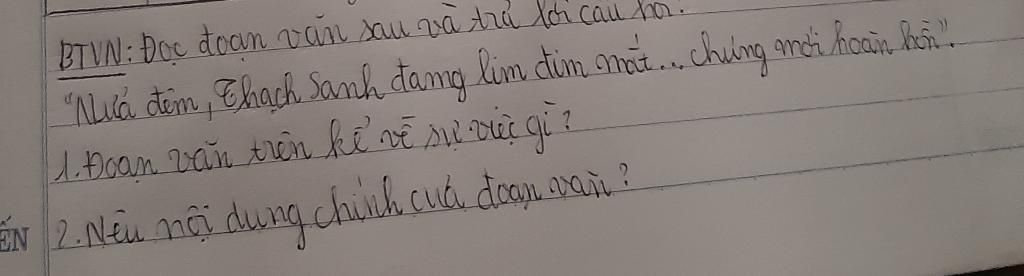 BTVN: Đọc đoạn văn sau và trả lời câu hỏi:
"Nửa đêm, Thạch Sanh đang lim dim mắt... chúng mới hoàn hồn".
1. Đoạn văn trên kể về sự việc gì?
2. Nêu nội dung chính của đoạn văn?
ẾN